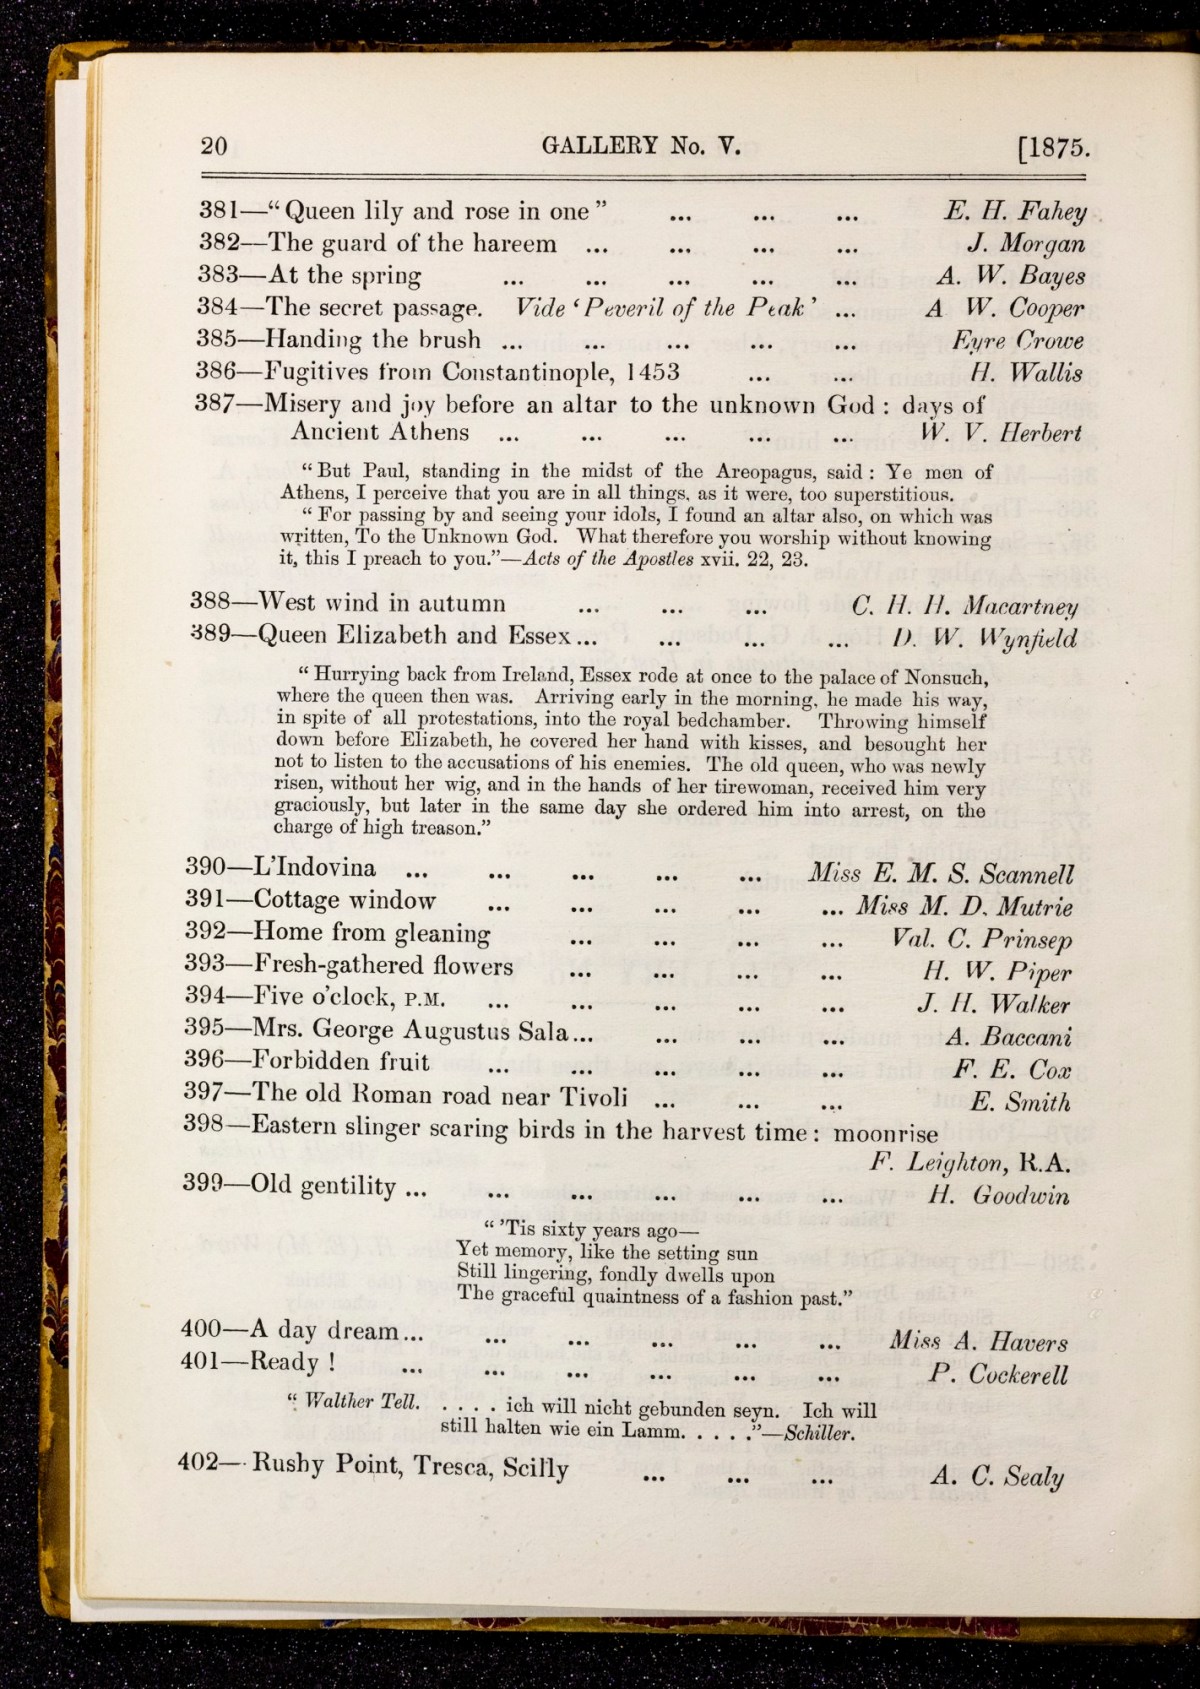 20 GALLERY No. V. [1875.
381—“Queen lily and rose in one” ... ... ... E. H. Fahey
382—The guard of the hareem ... ... ... ... J. Morgan
383—At the spring ... ... ... ... ... A. W. Bayes
384—The secret passage. Vide ‘Peveril of the Peak’ ... A W. Cooper
385—Handing the brush ... ... ... ... ... Eyre Crowe
386—Fugitives from Constantinople, 1453 ... ... H. Wallis
387—Misery and joy before an altar to the unknown God : days of
Ancient Athens ... ... ... ... ... W. V. Herbert
“But Paul, standing in the midst of the Areopagus, said : Ye men of
Athens, I perceive that you are in all things, as it were, too superstitious.
“For passing by and seeing your idols, I found an altar also, on which was
written, To the Unknown God. What therefore you worship without knowing
it, this I preach to you.”—Acts of the Apostles xvii. 22, 23.
388—West wind in autumn ... ... ... C. H. H. Macartney
389—Queen Elizabeth and Essex... ... ... ... D. W. Wynfield
“Hurrying back from Ireland, Essex rode at once to the palace of Nonsuch,
where the queen then was. Arriving early in the morning, he made his way,
in spite of all protestations, into the royal bedchamber. Throwing himself
down before Elizabeth, he covered her hand with kisses, and besought her
not to listen to the accusations of his enemies. The old queen, who was newly
risen, without her wig, and in the hands of her tirewoman, received him very
graciously, but later in the same day she ordered him into arrest, on the
charge of high treason.”
390—L’Indovina ... ... ... ... ... Miss E. M. S. Scannell
391—Cottage window ... ... ... ... ... Miss M. D. Mutrie
392—Home from gleaning ... ... ... ... Val. C. Prinsep
393—Fresh-gathered flowers ... ... ... ... H. W. Piper
394—Five o’clock, P.M. ... ... ... ... ... J. H. Walker
395—Mrs. George Augustus Sala... ... ... ... A. Baccani
396—Forbidden fruit ... ... ... ... ... F. E. Cox
397—The old Roman road near Tivoli ... ... ... E. Smith
398—Eastern slinger scaring birds in the harvest time : moonrise
F. Leighton, R.A.
399—Old gentility ... ... ... ... ... ... H. Goodwin
“’Tis sixty years ago—
Yet memory, like the setting sun
Still lingering, fondly dwells upon
The graceful quaintness of a fashion past.”
400—A day dream... ... ... ... ... ... Miss A. Havers
401—Ready ! ... ... ... ... ... ... P. Cockerell
“Walther Tell. . . . . ich will nicht gebunden seyn. Ich will
still halten wie ein Lamm. . . . .”—Schiller.
402—Rushy Point, Tresca, Scilly ... ... ... A. C. Sealy